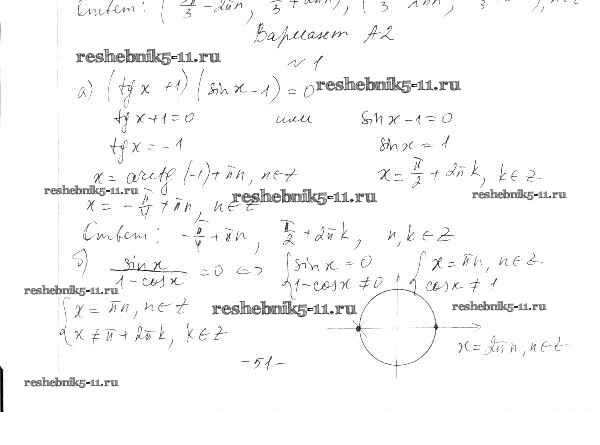 Ответ:
Вариант А2
reshebnik5-11.ru
№1
а) (tg x + 1)(sin x - 1) = 0 reshebnik5-11.ru
tg x + 1 = 0 или sin x - 1 = 0
tg x = -1 sin x = 1
x = arctg(-1) + πn, n∈z x = π/2 + 2πk, k∈z
reshebnik5-11.ru reshebnik5-11.ru reshebnik5-11.ru
x = -π/4 + πn, n∈z
Ответ: -π/4 + πn, π/2 + 2πk, n,k∈z
б) sin x / 1 - cos x = 0 <=> { sin x = 0 { x = πn, n∈z
1 - cos x ≠ 0 cos x ≠ 1
reshebnik5-11.ru
{ x = πn, n∈z reshebnik5-11.ru reshebnik5-11.ru
x ≠ π + 2πk, k∈z
x = 2πn, n∈z
-51-
reshebnik5-11.ru